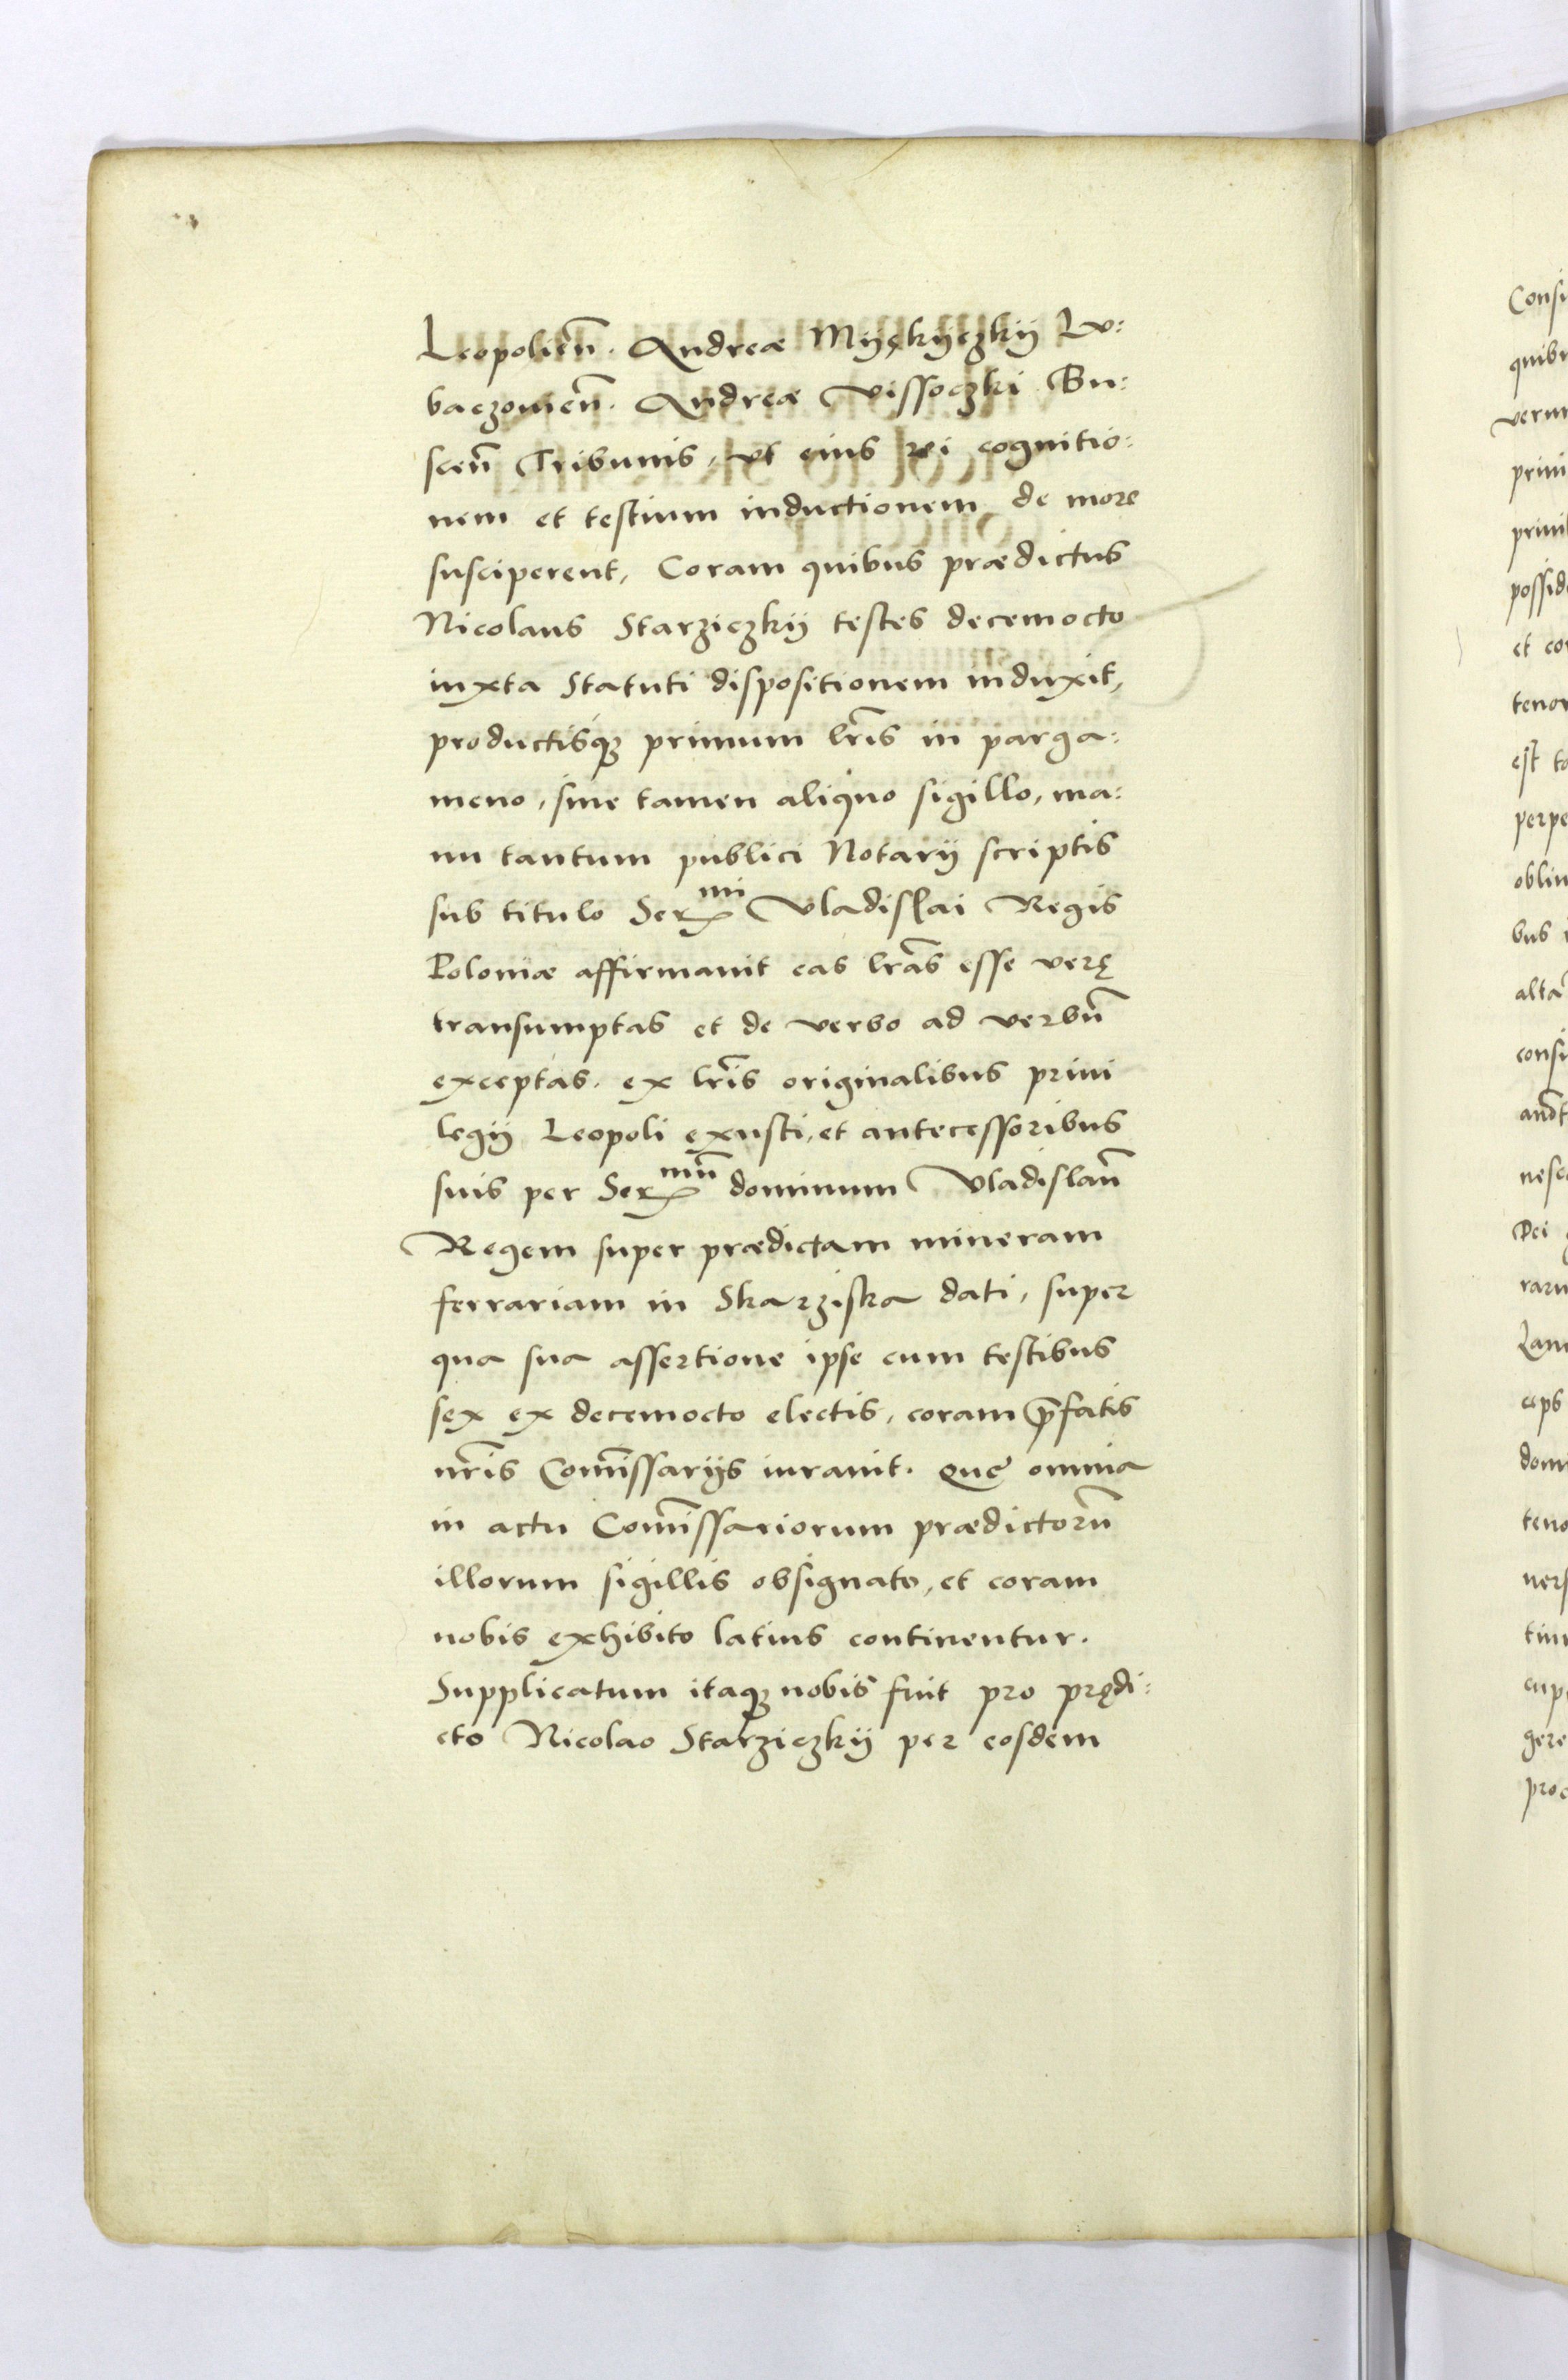 Leopolien̄. Andreæ Myękyczkij Lu:
baczowien̄. Andreæ Vissoczki Bu:
scen̄ Tribunis, ut eius rei cognitio:
nem et testium inductionem de more
susciperent, Coram quibus prædictus
Nicolaus Starziczkij testes decemocto
iuxta Statuti dispositionem induxit,
productisq3 primum lr̄is in parga:
meno, sine tamen aliquo sigillo, ma:
nu tantum publici Notarij scriptis
sub titulo Ser^mi Vladislai Regis
Poloniæ affirmauit eas lr̄as esse verę
transumptas et de verbo ad verbū
exceptas. ex lr̄is originalibus priui
legij Leopoli exusti, et antecessoribus
suis per Ser^mū dominum Vladislaū
Regem super prædictam mineram
ferrariam in Skarziska dati, super
qua sua assertione ipse cum testibus
sex ex decemocto electis, coram p̄fatis
nr̄is Com̄issarijs iurauit. Quę omnia
in actu Com̄issariorum prædictorū
illorum sigillis obsignato, et coram
nobis exhibito latius continentur.
Supplicatum itaq3 nobis fuit pro prędi:
cto Nicolao Starziczkij per eosdem
Consi
quibu
verum
priui
priuil
possid
et co
tenor
est ta
perpe
obliu
bus
altā
consi
nesc
Dei
raru
Lan
ceps
dom
teno
vers
tin
cup
gere
proc